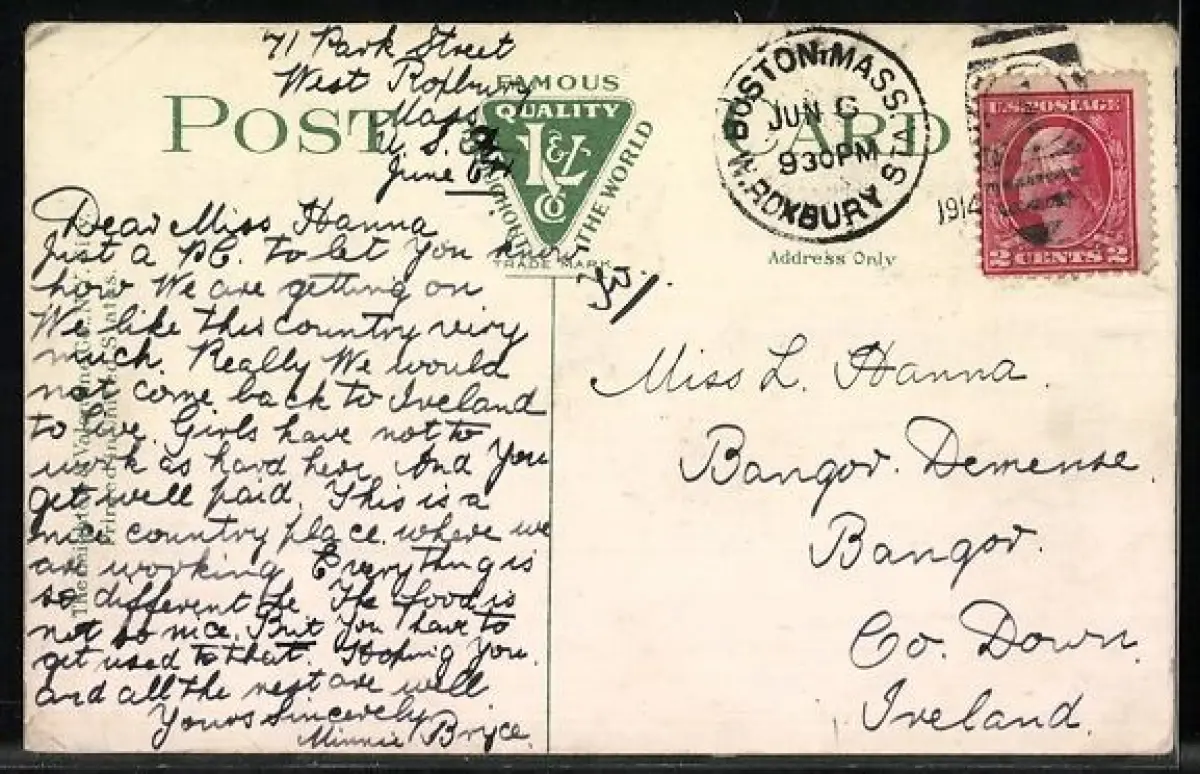 71 Park Street
West Roxbury
Mass
U. S. A
June 6th
POST CARD
FAMOUS
QUALITY
L&L
Co
THROUGHOUT THE WORLD
TRADE MARK
BOSTON, MASS.
JUN 6
930PM
W. ROXBURY STA.
1914
U.S. POSTAGE
2 CENTS 2
Address Only
Dear Miss Hanna
Just a P.C. to let you know
how We are getting on
We like this country very
much. Really We would
not come back to Ireland
to live. Girls have not to
work as hard here And You
get well paid. This is a
nice country place. where we
are working Everything is
so different the The food is
not so nice. But You have to
get used to that. Hoping You.
and all the rest are well
Yours Sincerely
Minnie Bryce.
Miss L. Hanna.
Bangor. Demense.
Bangor.
Co. Down.
Ireland.
Printed in United States